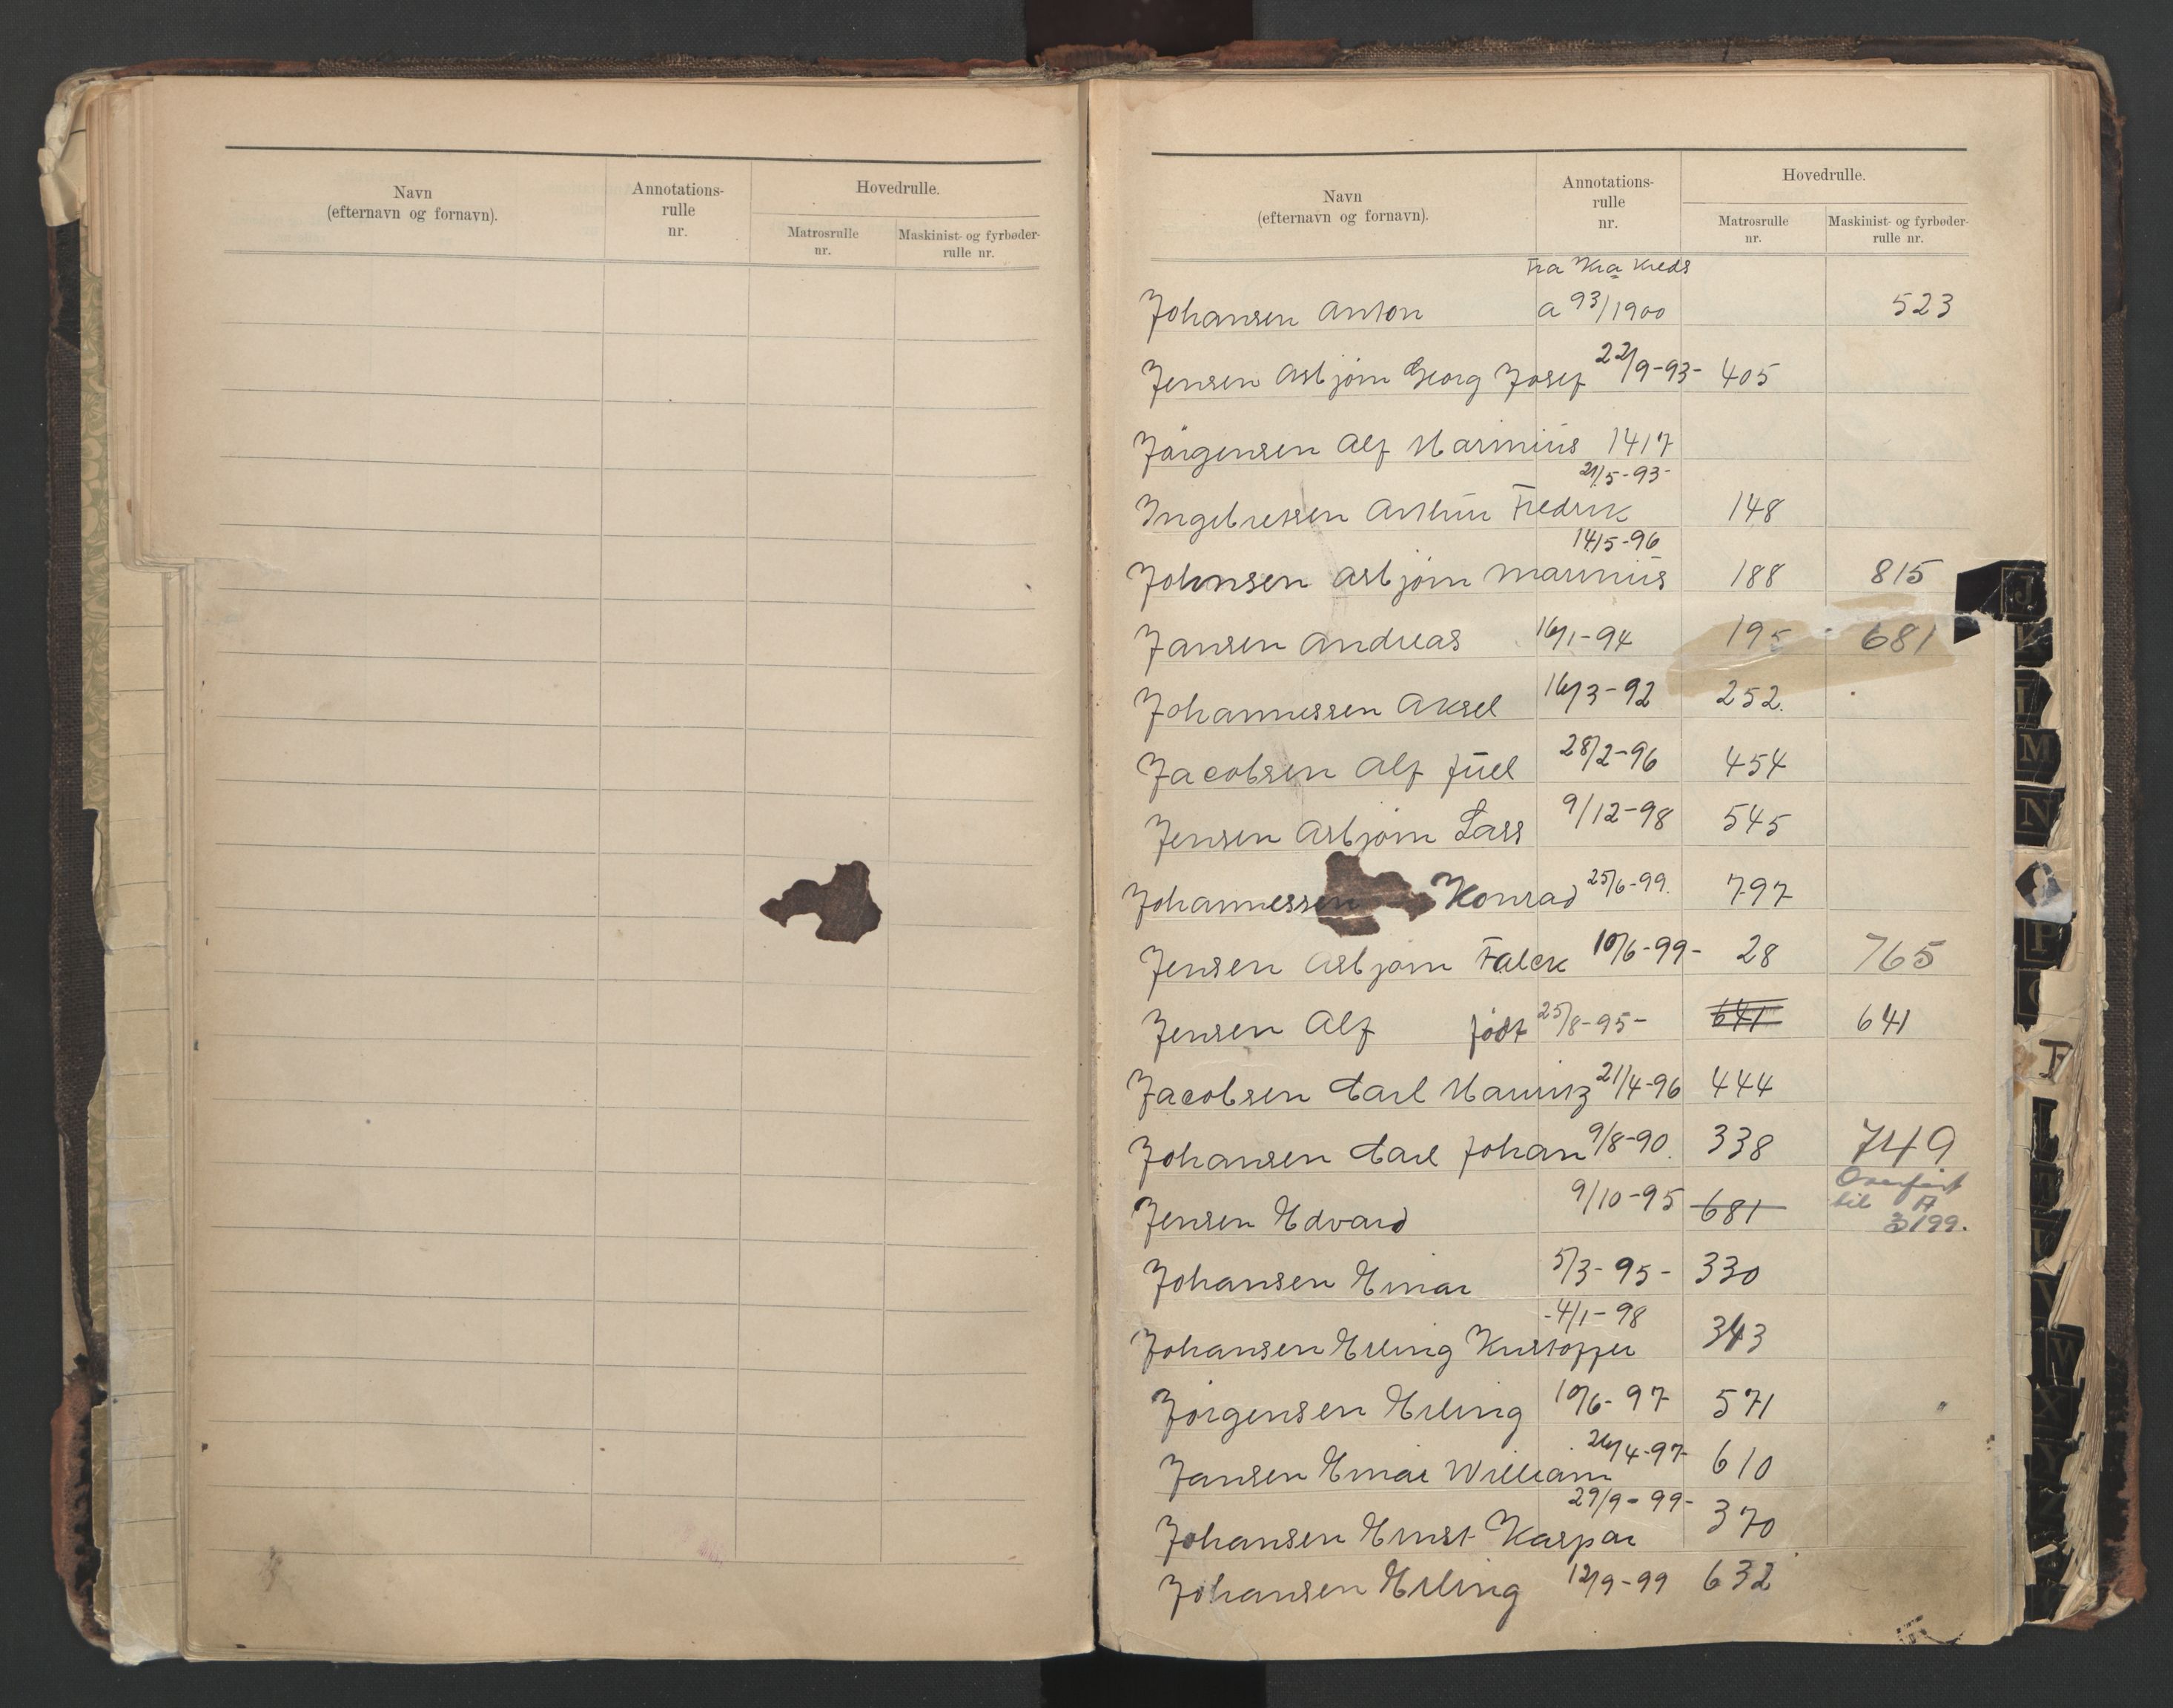 Navn
(efternavn og fornavn).
Annotations-
rulle
nr.
Hovedrulle.
Matrosrulle
nr.
Maskinist- og fyrbøder-
rulle nr.
Navn
(efternavn og fornavn).
Annotations-
rulle
nr.
Hovedrulle.
Matrosrulle
nr.
Maskinist- og fyrbøder-
rulle nr.
Fra Kra Kreds
Johansen Anton a 93/1900 523
Jensen Asbjørn Georg Josef 22/9-93- 405
Jørgensen Alf Marinius 1417
21/5-93-
Ingebretsen Arthur Fredrik 148
14/5-96
Johnsen Asbjørn Marinius 188 815
Jansen Andreas 16/1-94 195 681
Johannessen Aksel 16/3-92 252.
Jacobsen Alf Juel 28/2-96 454
Jensen Asbjørn Lass 9/12-98 545
Johannessen Konrad 25/6-99. 797
Jensen Asbjørn Falck 10/6-99- 28 765
Jensen Alf født 25/8-95- 641 641
Jacobsen Carl Mauritz 21/4-96 444
Johansen Carl Johan 9/8-90. 338 749
Jensen Edvard 9/10-95 681 Overført
til A
3199.
Johansen Einar 5/3-95- 330
-4/1-98
Johansen Erling Kristoffer 343
Jørgensen Erling 10/6-97 571
Jansen Einar William 26/4-97- 610
29/9-99-
Johansen Ernst Kaspar 370
Johansen Erling 12/9-99 632
J
K
L
M
N
P